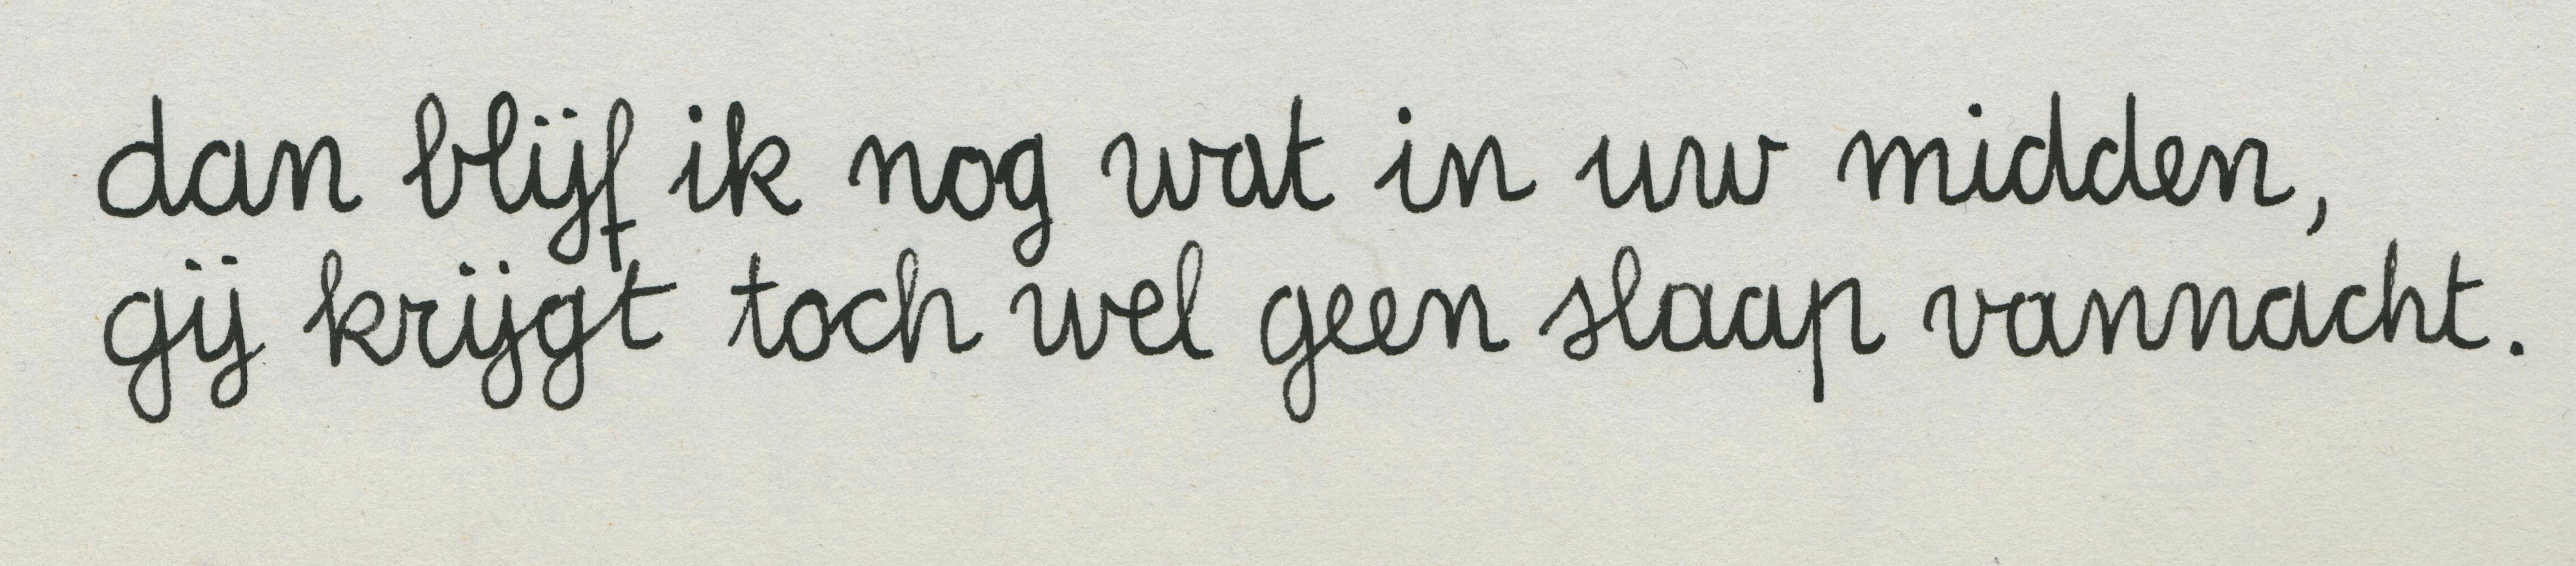 dan blijf ik nog wat in uw midden,
gij krijgt toch wel geen slaap vannacht.